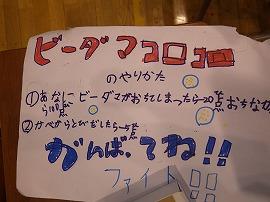 ビーダマコロコロ
のやりかた
①あなにビーダマがおちてしまったら-20点おちなかったら100点
②かべからとびだしたら-5点
がんばってね!!
ファイト!!